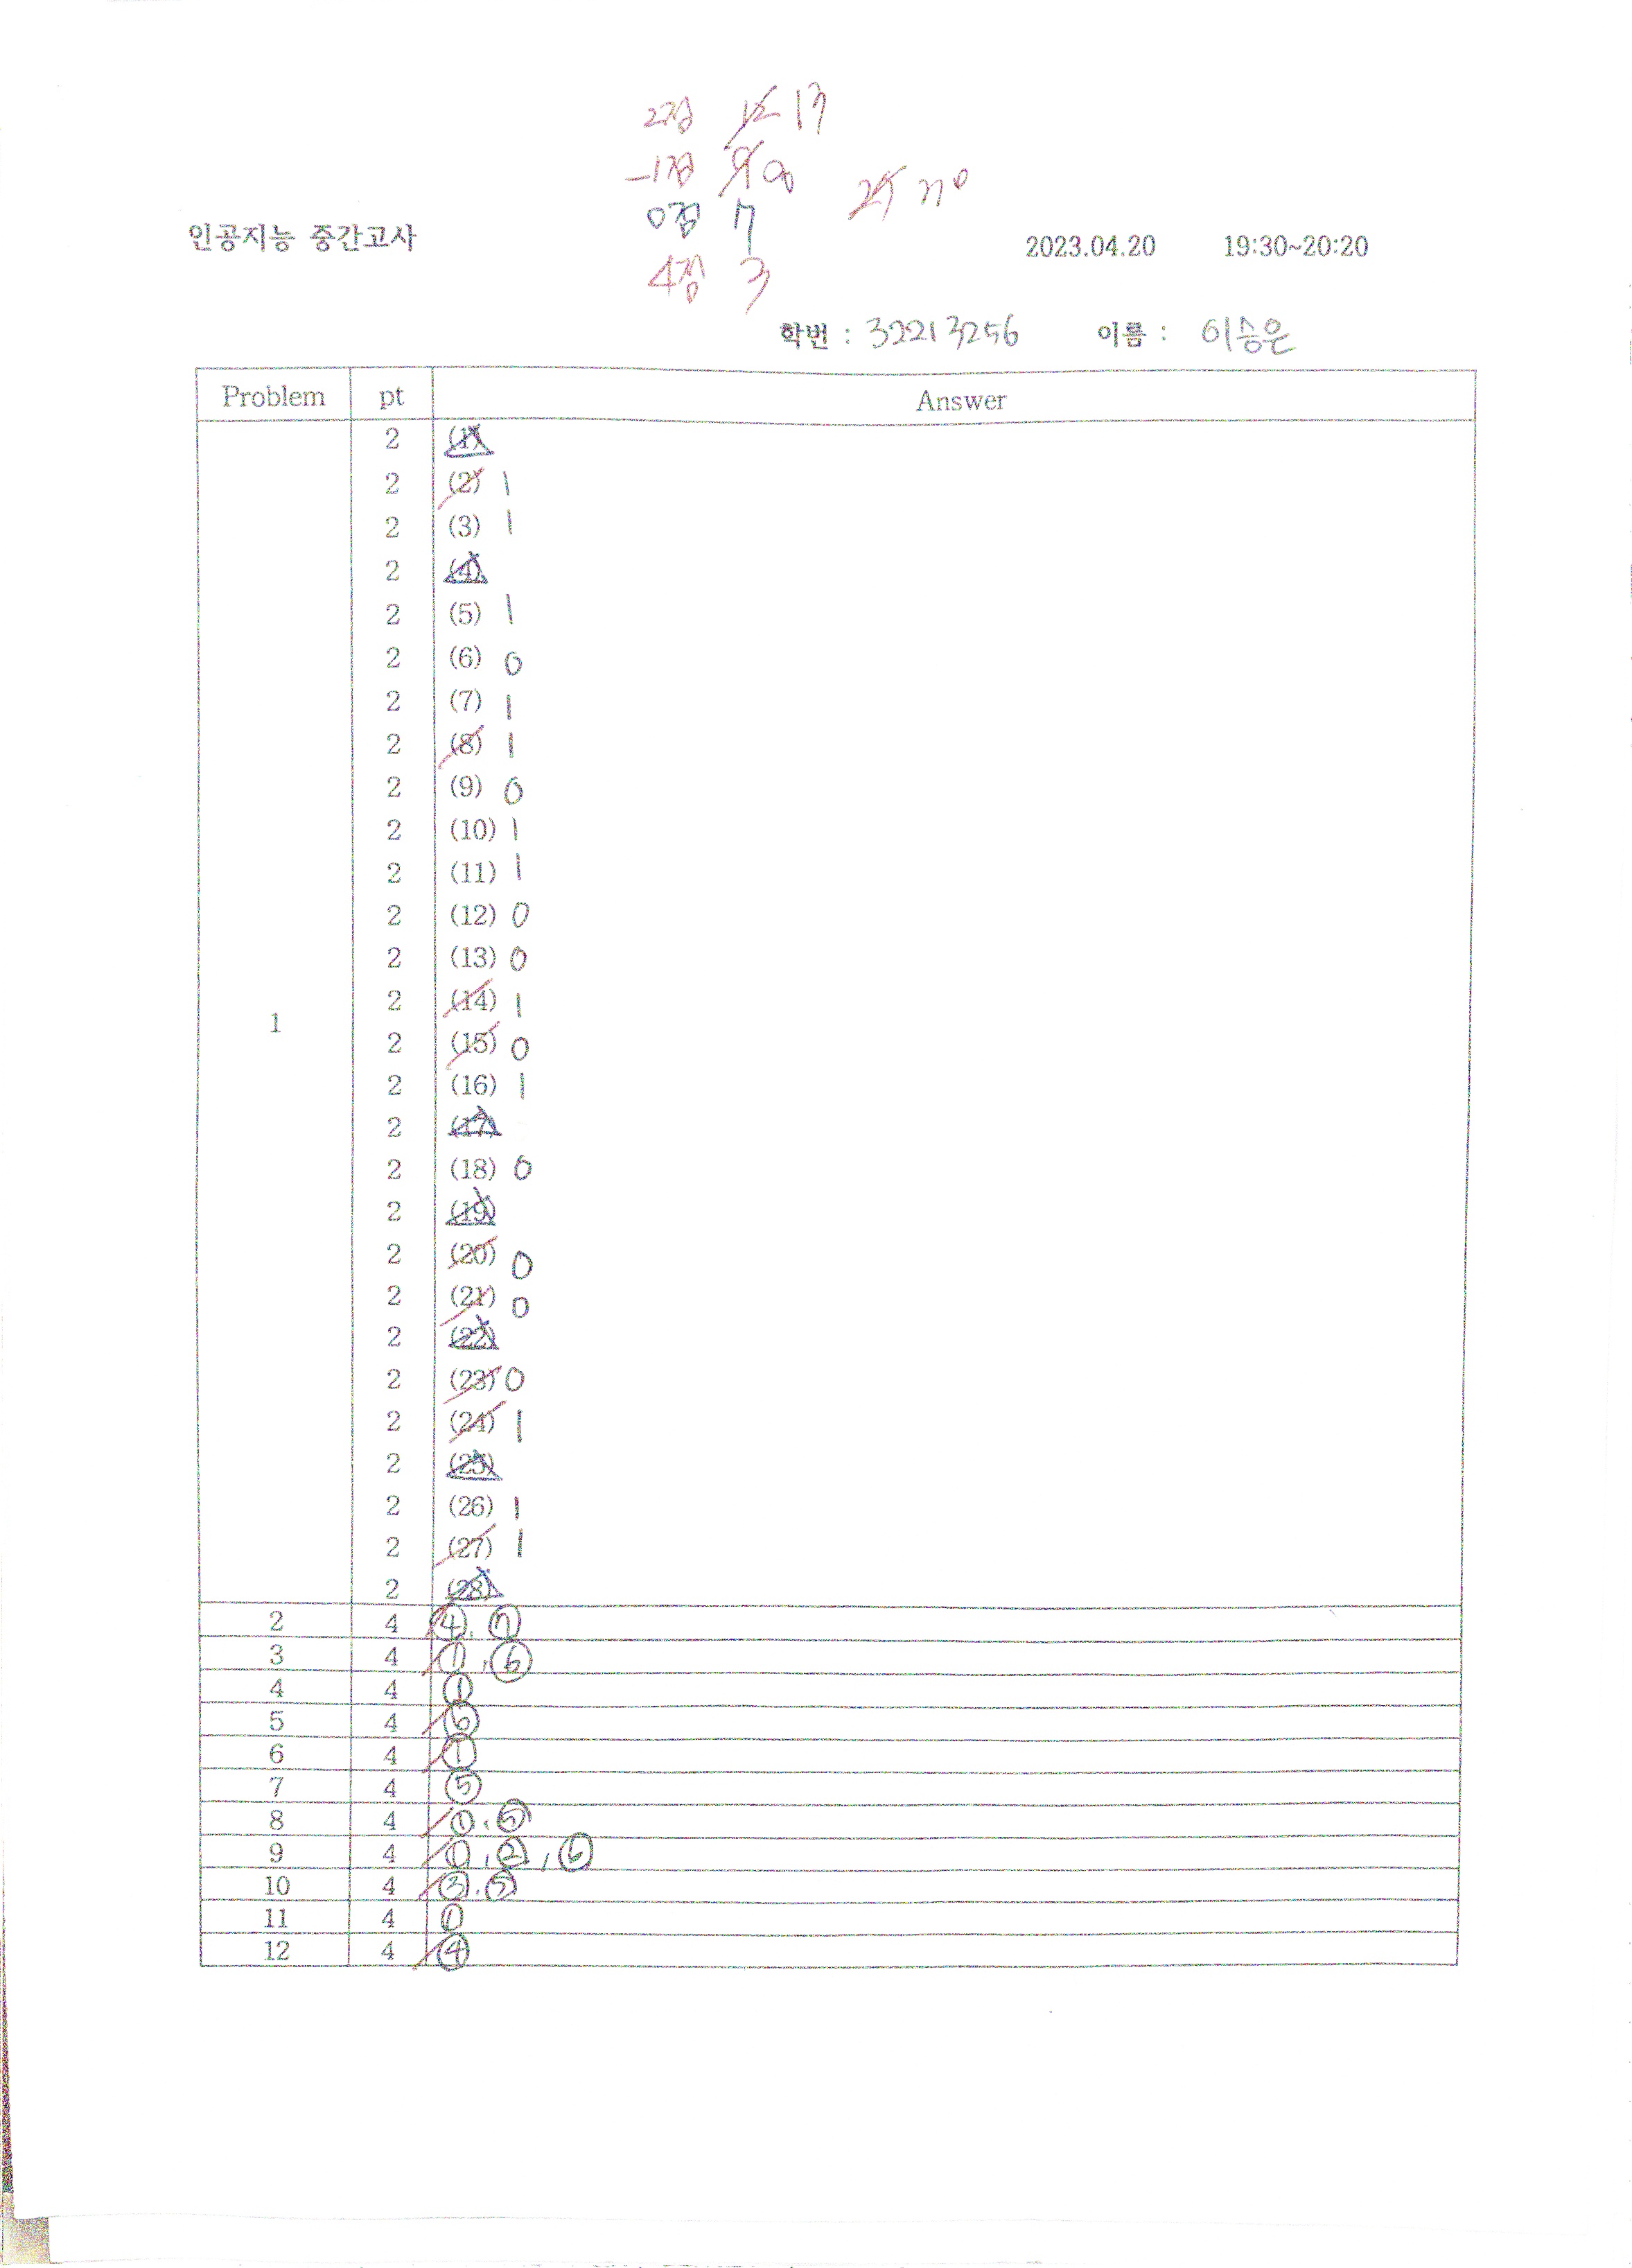 2점 12 13
-1점 9 8
0점 7
4점 3
인공지능 중간고사 2023.04.20 19:30~20:20
학번 : 32213256 이름 : 이승은
Problem pt Answer
2 (1)
2 (2) 1
2 (3) 1
2 (4)
2 (5) 1
2 (6) 0
2 (7) 1
2 (8) 1
2 (9) 0
2 (10) 1
2 (11) 1
2 (12) 0
2 (13) 0
2 (14) 1
1
2 (15) 0
2 (16) 1
2 (17)
2 (18) 0
2 (19)
2 (20) 0
2 (21) 0
2 (22)
2 (23) 0
2 (24) 1
2 (25)
2 (26) 1
2 (27) 1
2 (28)
2 4 ④, ⑦
3 4 ①, ⑥
4 4 ①
5 4 ⑥
6 4 ①
7 4 ⑤
8 4 ①, ⑤
9 4 ①, ②, ⑥
10 4 ③, ⑤
11 4 ①
12 4 ④